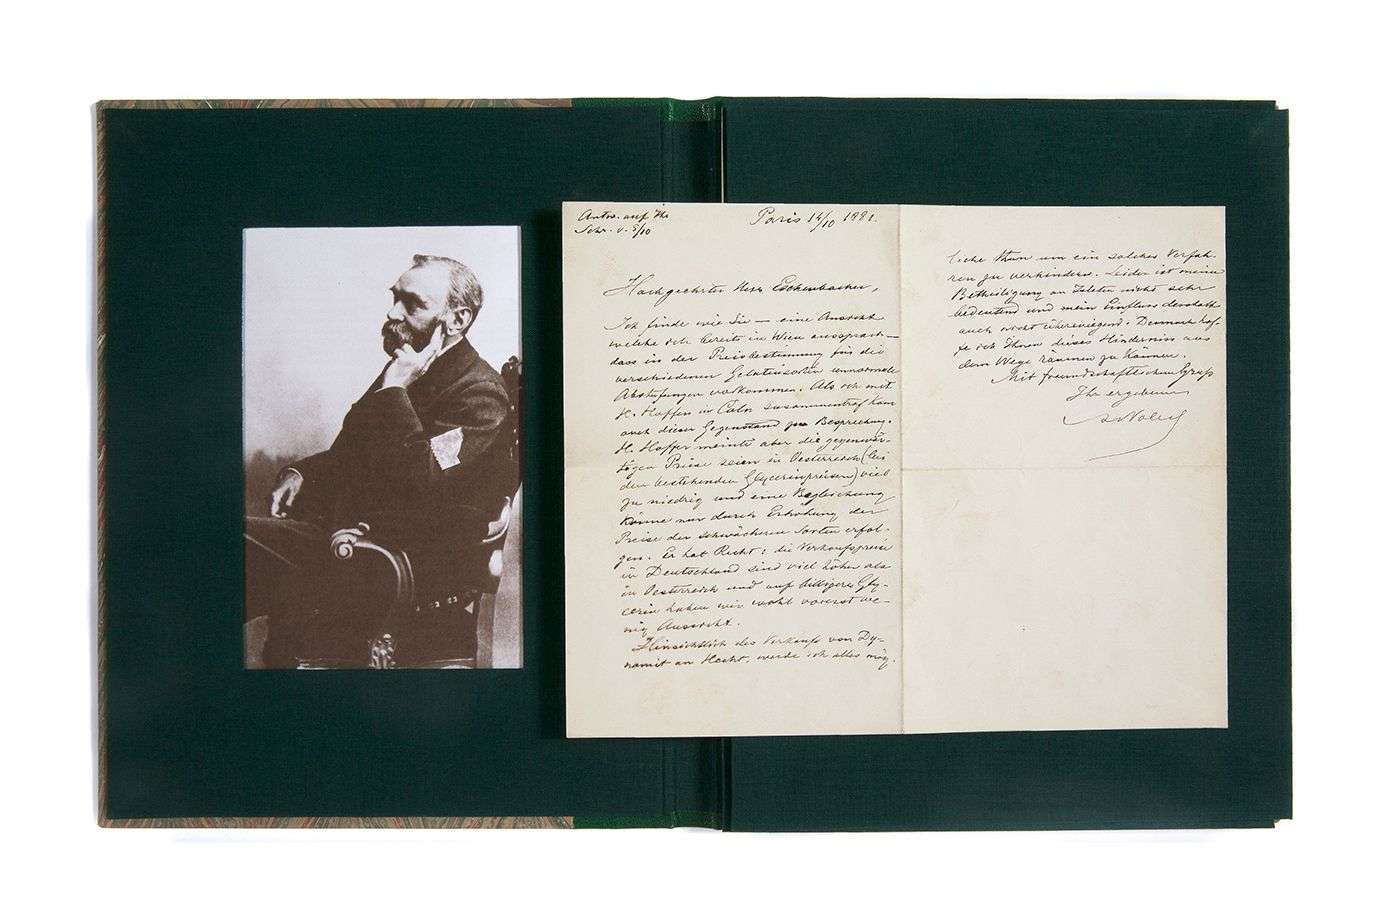 Antw. auf Ihr
Schr. v. 5/10
Paris 14/10 1881.
Hochgeehrter Herr Eschenbacher,
Ich finde wie Sie – eine Ansicht
welche ich bereits in Wien aussprach –
dass in der Preisbestimmung für die
verschiedenen Gelatinsorten unnormale
Abstufungen vorkommen. Als ich mit
H. Hoffer in Cöln zusammentraf kam
auch dieser Gegenstand zu Besprechung.
H. Hoffer meinte aber die gegenwär-
tigen Preise seien in Oesterreich (bei
den bestehenden Glycerinpreisen) viel
zu niedrig und eine Begleichung
könne nur durch Erhöhung der
Preise der schwächeren Sorten erfol-
gen. Er hat Recht: die Verkaufspreise
in Deutschland sind viel höher als
in Oesterreich und auf billigeres Gly-
cerin haben wir wohl vorerst we-
nig Aussicht.
Hinsichtlich des Verkaufs von Dy-
namit an Hecht, werde ich alles mög-
liche thun um ein solches Verfah-
ren zu verhindern. Leider ist meine
Betheiligung an nicht sehr
bedeutend und mein Einfluss desshalb
auch nicht überwiegend. Dennoch hof-
fe ich Ihnen dieses Hinderniss aus
dem Wege räumen zu können.
Mit freundschaftlichem Gruss
Ihr ergebener
A Nobel